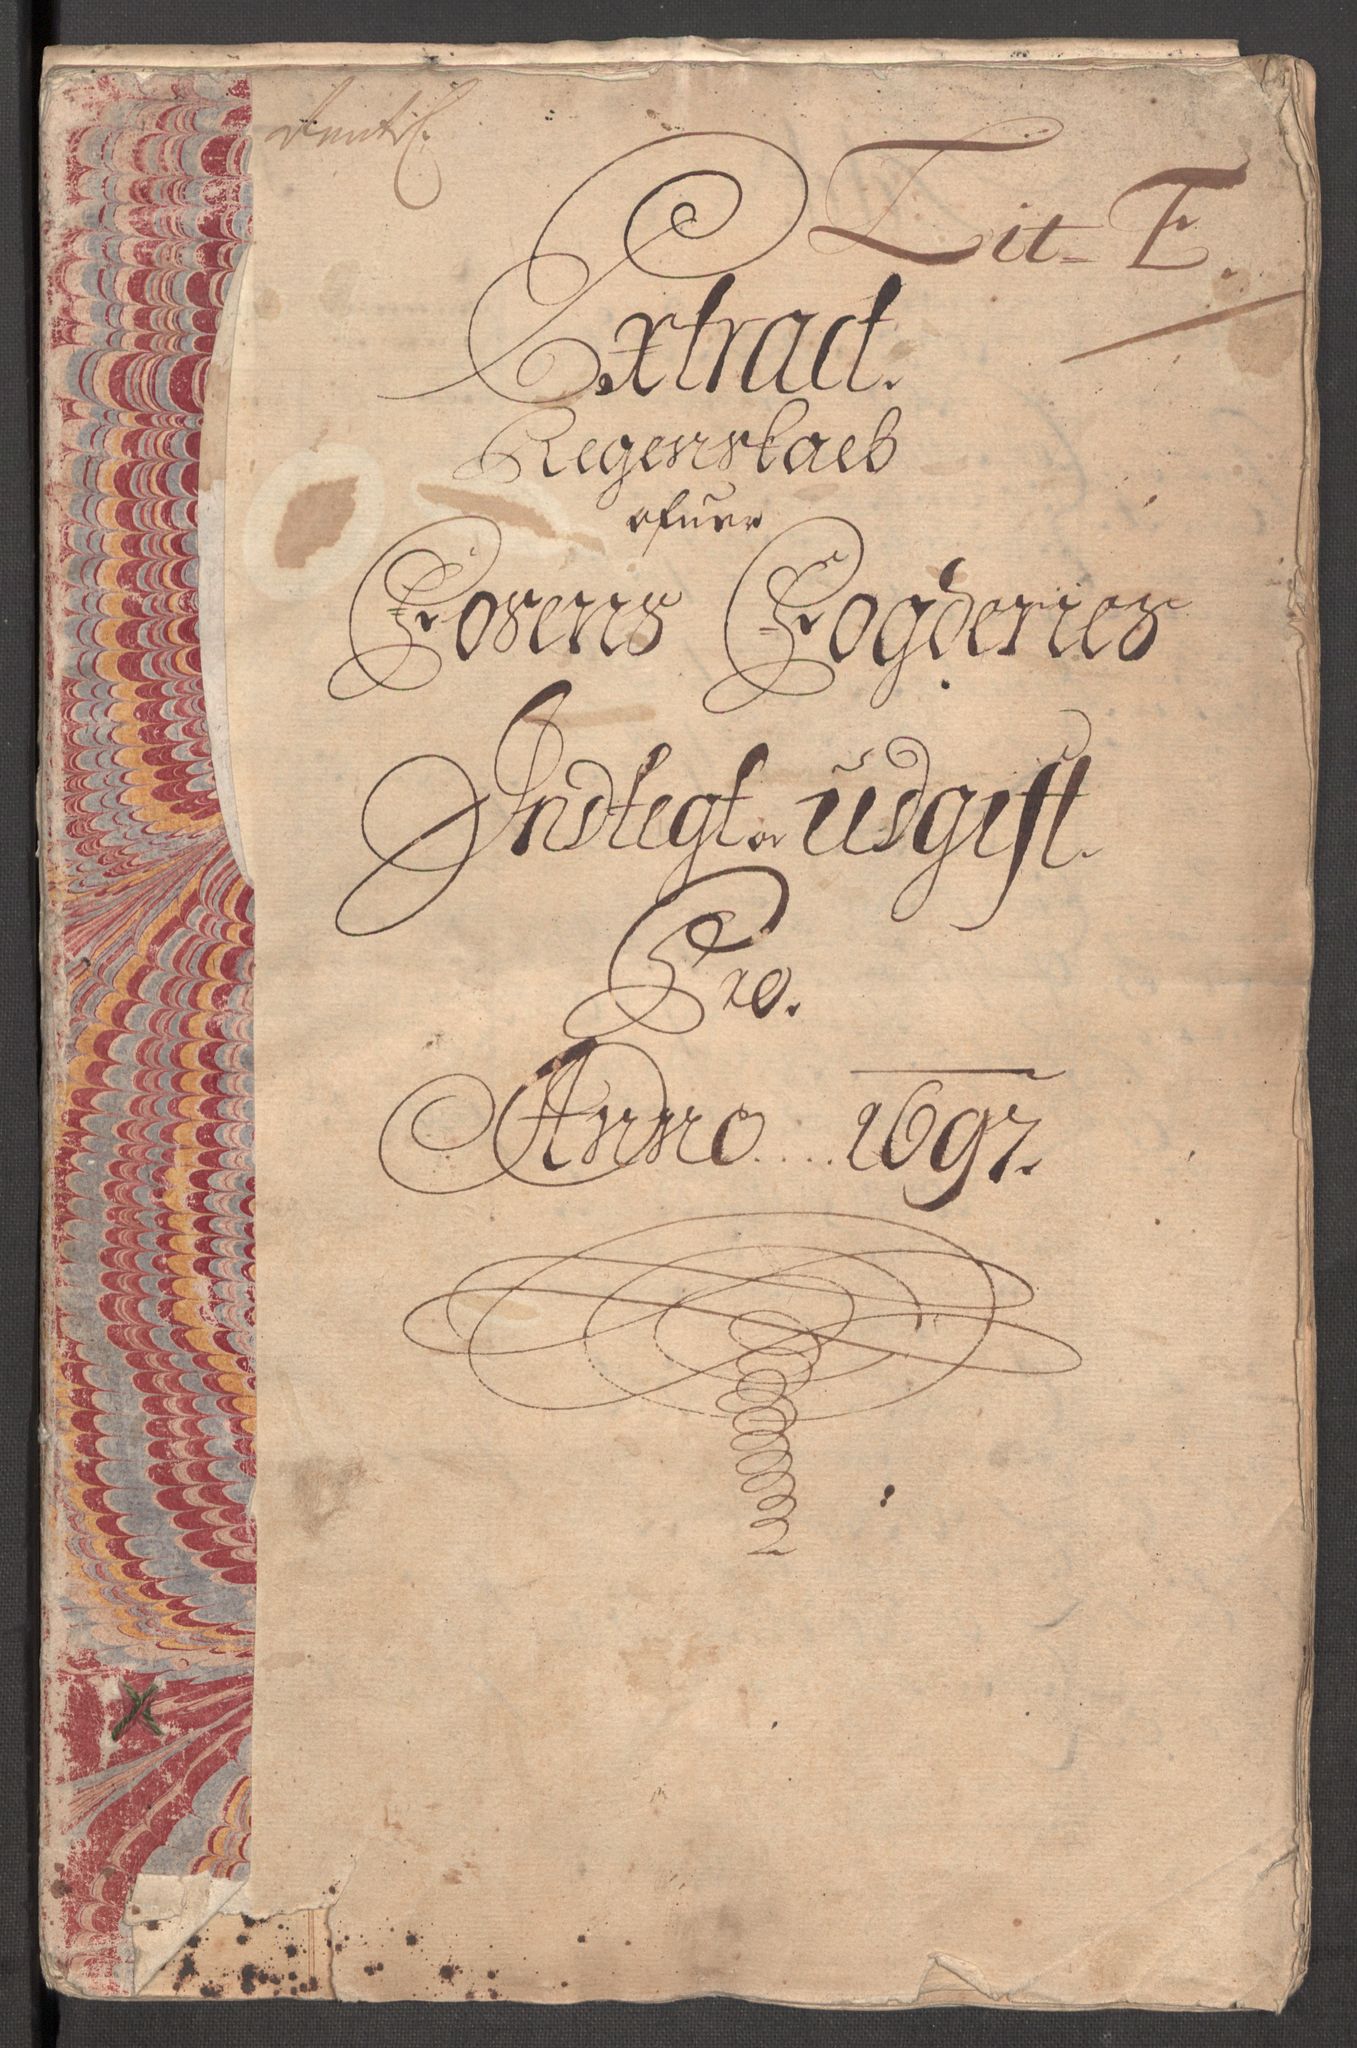 Lit- E.
Extract.
Regenskaeb
ofuer
Fosens Fogderies
Indtegt oc Udgift.
Pro.
Anno .... 1697.